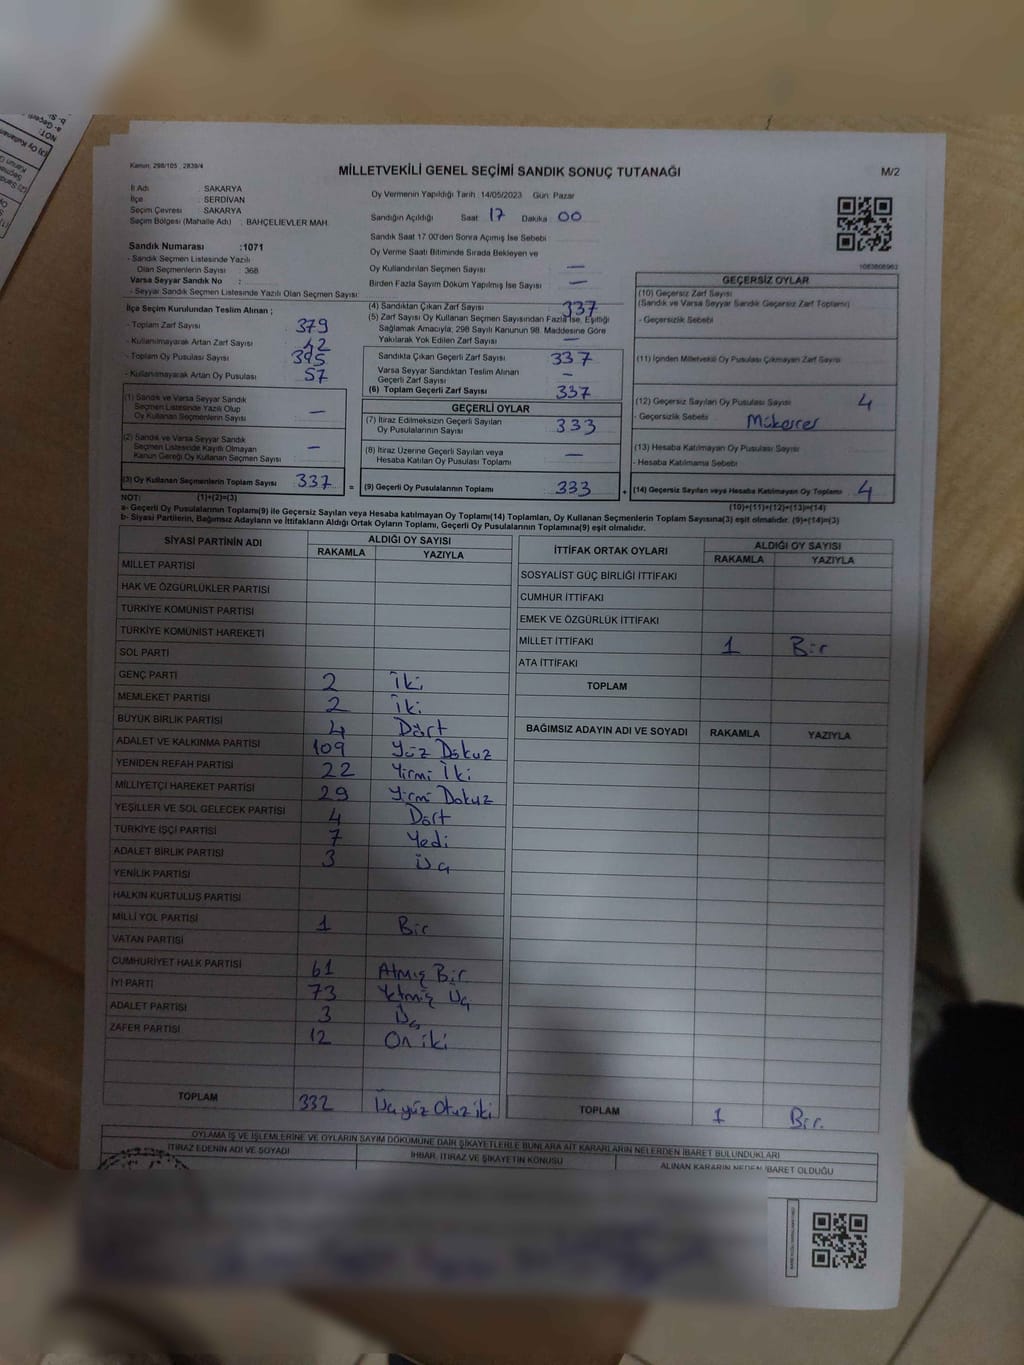 Kanun: 298/105 , 2839/4
MİLLETVEKİLİ GENEL SEÇİMİ SANDIK SONUÇ TUTANAĞI
M/2
İl Adı : SAKARYA
İlçe : SERDİVAN
Seçim Çevresi : SAKARYA
Seçim Bölgesi (Mahalle Adı) : BAHÇELİEVLER MAH.
Oy Vermenin Yapıldığı Tarih : 14/05/2023 Gün: Pazar
Sandığın Açıldığı Saat 17 Dakika 00
Sandık Saat 17.00'den Sonra Açılmış İse Sebebi
Oy Verme Saati Bitiminde Sırada Bekleyen ve
Oy Kullandırılan Seçmen Sayısı —
Birden Fazla Sayım Döküm Yapılmış İse Sayısı —
Sandık Numarası :1071
- Sandık Seçmen Listesinde Yazılı
Olan Seçmenlerin Sayısı : 368
Varsa Seyyar Sandık No :
- Seyyar Sandık Seçmen Listesinde Yazılı Olan Seçmen Sayısı:
İlçe Seçim Kurulundan Teslim Alınan ;
- Toplam Zarf Sayısı 379
- Kullanılmayarak Artan Zarf Sayısı 42
- Toplam Oy Pusulası Sayısı 395
- Kullanılmayarak Artan Oy Pusulası 57
(1) Sandık ve Varsa Seyyar Sandık
Seçmen Listesinde Yazılı Olup
Oy Kullanan Seçmenlerin Sayısı —
(2) Sandık ve Varsa Seyyar Sandık
Seçmen Listesinde Kayıtlı Olmayan
Kanun Gereği Oy Kullanan Seçmen Sayısı —
(3) Oy Kullanan Seçmenlerin Toplam Sayısı 337
(4) Sandıktan Çıkan Zarf Sayısı 337
(5) Zarf Sayısı Oy Kullanan Seçmen Sayısından Fazla İse, Eşitliği
Sağlamak Amacıyla; 298 Sayılı Kanunun 98. Maddesine Göre
Yakılarak Yok Edilen Zarf Sayısı —
Sandıkta Çıkan Geçerli Zarf Sayısı 337
Varsa Seyyar Sandıktan Teslim Alınan
Geçerli Zarf Sayısı —
(6) Toplam Geçerli Zarf Sayısı 337
GEÇERLİ OYLAR
(7) İtiraz Edilmeksizin Geçerli Sayılan
Oy Pusulalarının Sayısı 333
(8) İtiraz Üzerine Geçerli Sayılan veya
Hesaba Katılan Oy Pusulası Toplamı —
= (9) Geçerli Oy Pusulalarının Toplamı 333
1083808963
GEÇERSİZ OYLAR
(10) Geçersiz Zarf Sayısı
(Sandık ve Varsa Seyyar Sandık Geçersiz Zarf Toplamı)
- Geçersizlik Sebebi
(11) İçinden Milletvekili Oy Pusulası Çıkmayan Zarf Sayısı
(12) Geçersiz Sayılan Oy Pusulası Sayısı 4
- Geçersizlik Sebebi Mükerrer
(13) Hesaba Katılmayan Oy Pusulası Sayısı
- Hesaba Katılmama Sebebi
+ (14) Geçersiz Sayılan veya Hesaba Katılmayan Oy Toplamı 4
NOT: (1)+(2)=(3)
(10)+(11)+(12)+(13)=(14)
a- Geçerli Oy Pusulalarının Toplamı(9) ile Geçersiz Sayılan veya Hesaba katılmayan Oy Toplamı(14) Toplamları, Oy Kullanan Seçmenlerin Toplam Sayısına(3) eşit olmalıdır. (9)+(14)=(3)
b- Siyasi Partilerin, Bağımsız Adayların ve İttifakların Aldığı Ortak Oyların Toplamı, Geçerli Oy Pusulalarının Toplamına(9) eşit olmalıdır.
SİYASİ PARTİNİN ADI
ALDIĞI OY SAYISI
RAKAMLA YAZIYLA
MİLLET PARTİSİ
HAK VE ÖZGÜRLÜKLER PARTİSİ
TÜRKİYE KOMÜNİST PARTİSİ
TÜRKİYE KOMÜNİST HAREKETİ
SOL PARTİ
GENÇ PARTİ 2 İki
MEMLEKET PARTİSİ 2 İki
BÜYÜK BİRLİK PARTİSİ 4 Dört
ADALET VE KALKINMA PARTİSİ 109 Yüz Dokuz
YENİDEN REFAH PARTİSİ 22 Yirmi İki
MİLLİYETÇİ HAREKET PARTİSİ 29 Yirmi Dokuz
YEŞİLLER VE SOL GELECEK PARTİSİ 4 Dört
TÜRKİYE İŞÇİ PARTİSİ 7 Yedi
ADALET BİRLİK PARTİSİ 3 Üç
YENİLİK PARTİSİ
HALKIN KURTULUŞ PARTİSİ
MİLLİ YOL PARTİSİ 1 Bir
VATAN PARTİSİ
CUMHURİYET HALK PARTİSİ 61 Atmış Bir
İYİ PARTİ 73 Yetmiş Üç
ADALET PARTİSİ 3 Üç
ZAFER PARTİSİ 12 On iki
TOPLAM 332 Üç yüz Otuz iki
İTTİFAK ORTAK OYLARI
ALDIĞI OY SAYISI
RAKAMLA YAZIYLA
SOSYALİST GÜÇ BİRLİĞİ İTTİFAKI
CUMHUR İTTİFAKI
EMEK VE ÖZGÜRLÜK İTTİFAKI
MİLLET İTTİFAKI 1 Bir
ATA İTTİFAKI
TOPLAM
BAĞIMSIZ ADAYIN ADI VE SOYADI RAKAMLA YAZIYLA
TOPLAM 1 Bir.
OYLAMA İŞ VE İŞLEMLERİNE VE OYLARIN SAYIM DÖKÜMÜNE DAİR ŞİKAYETLERLE BUNLARA AİT KARARLARIN NELERDEN İBARET BULUNDUKLARI
İTİRAZ EDENİN ADI VE SOYADI
İHBAR, İTİRAZ VE ŞİKAYETİN KONUSU
ALINAN KARARIN NEDEN İBARET OLDUĞU